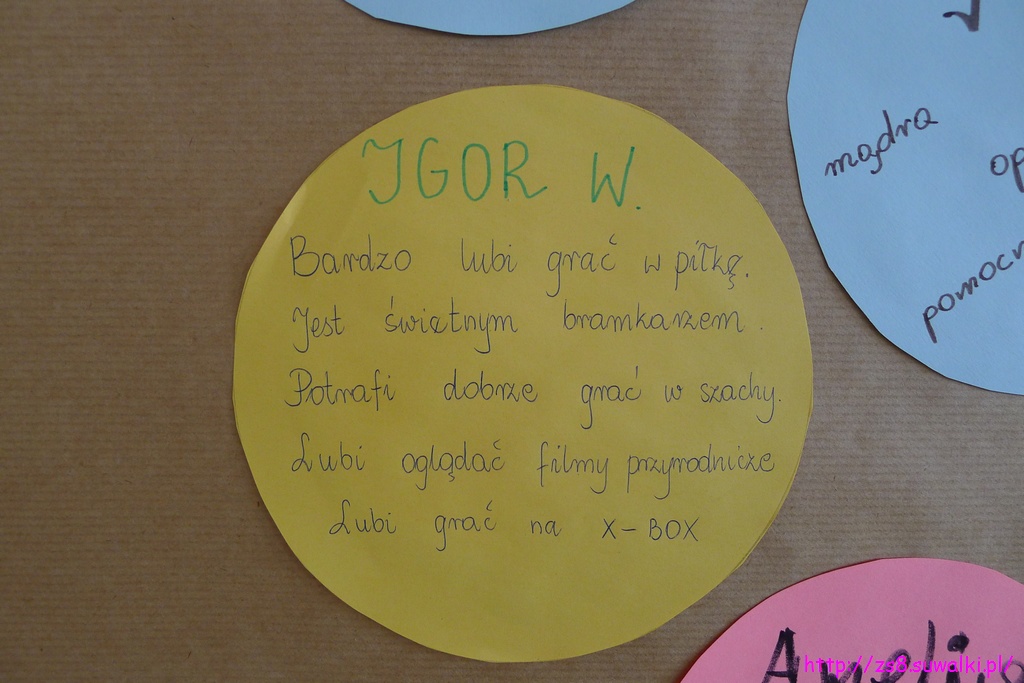 IGOR W.
Bardzo lubi grać w piłkę.
Jest świetnym bramkarzem.
Potrafi dobrze grać w szachy.
Lubi oglądać filmy przyrodnicze
Lubi grać na X-BOX
mądra
http://zs8.suwalki.pl/